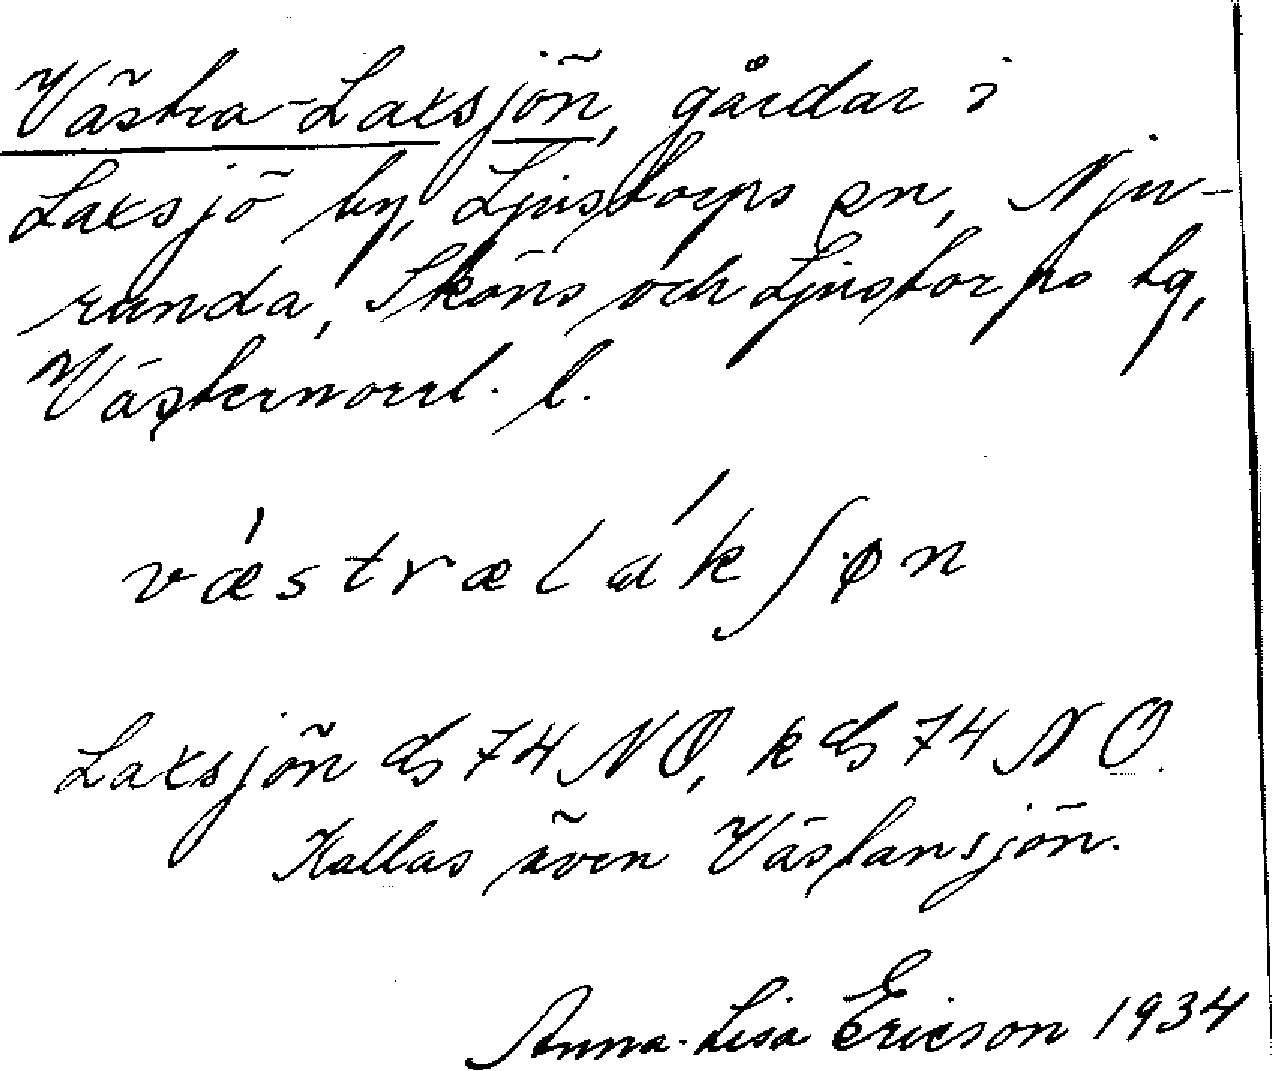 Västra-Laxsjön, gårdar i
Laxsjö by, Ljustorps sn, Nju-
runda, Sköns och Ljustorps tg,
Västernorrl. l.
væ´stræla´kʃøn
Laxsjön ds 74 NO, k ds 74 NO.
Kallas även Västansjön.
Anna-Lisa Ericson 1934